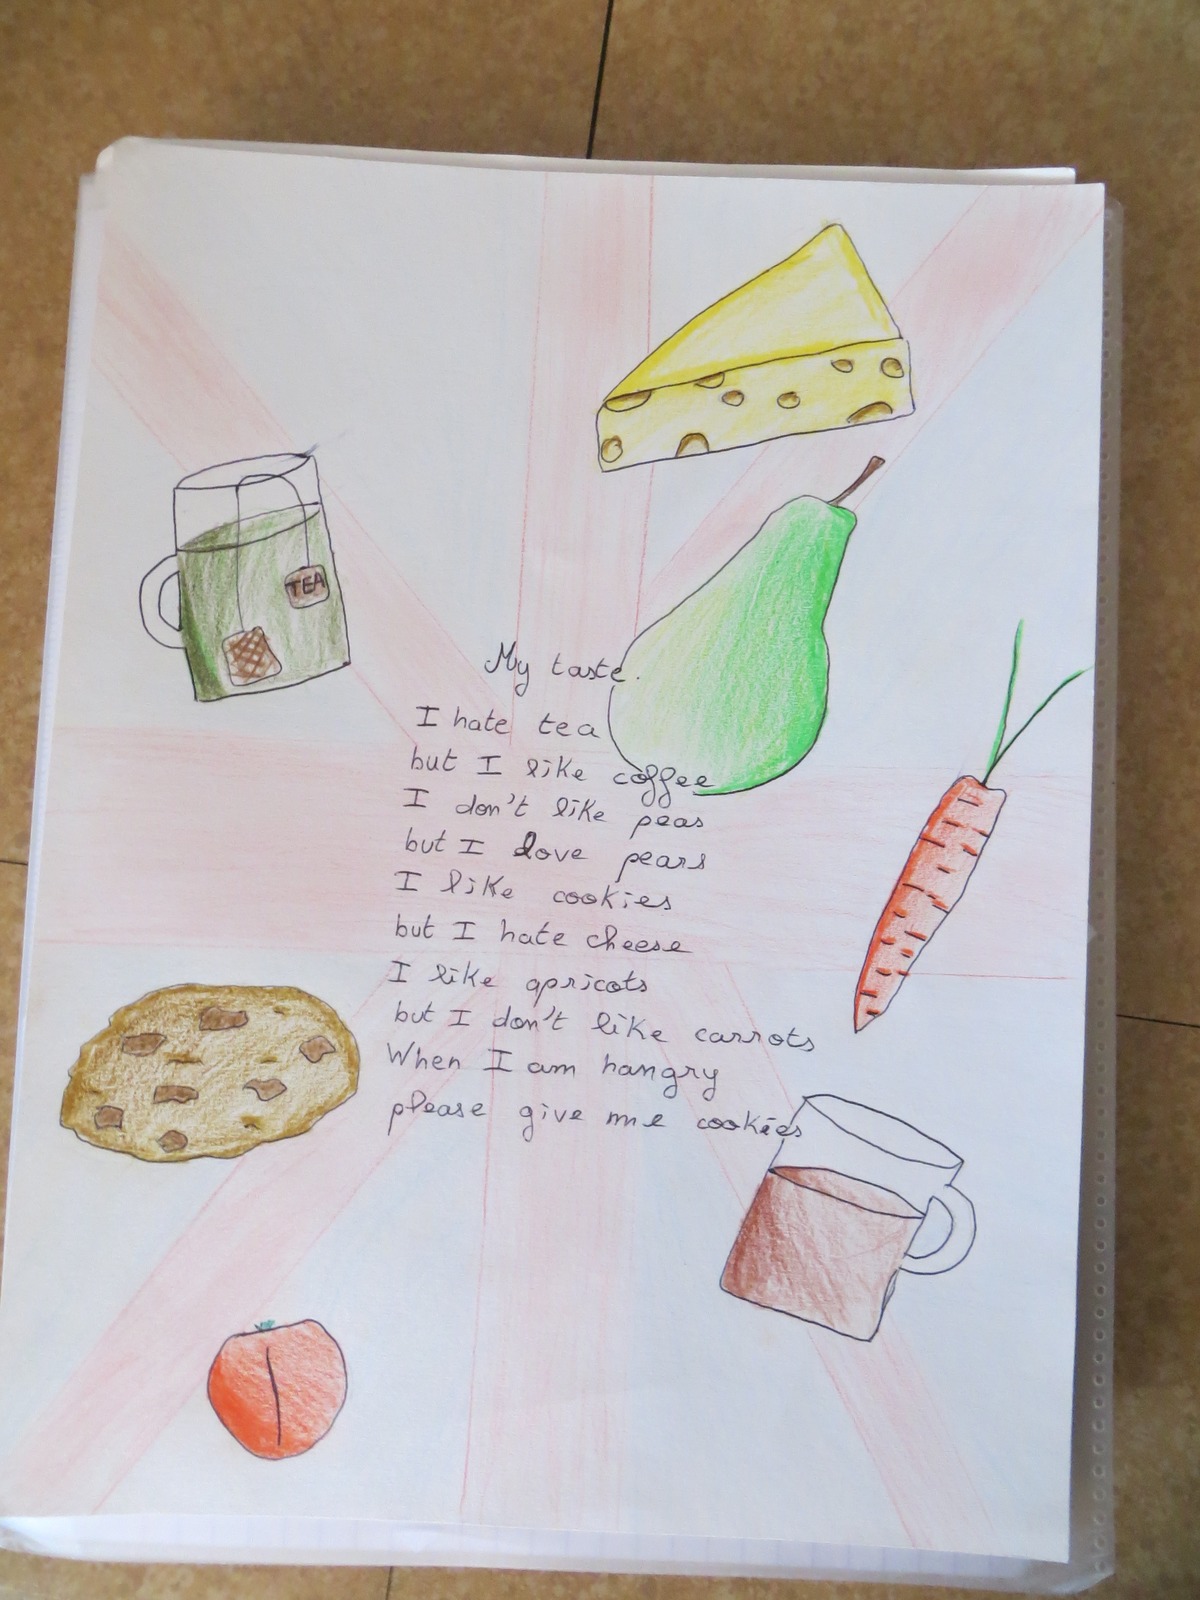 TEA
My taste.
I hate tea
but I like coffee
I don't like peas
but I love pears
I like cookies
but I hate cheese
I like apricots
but I don't like carrots
When I am hangry
please give me cookies